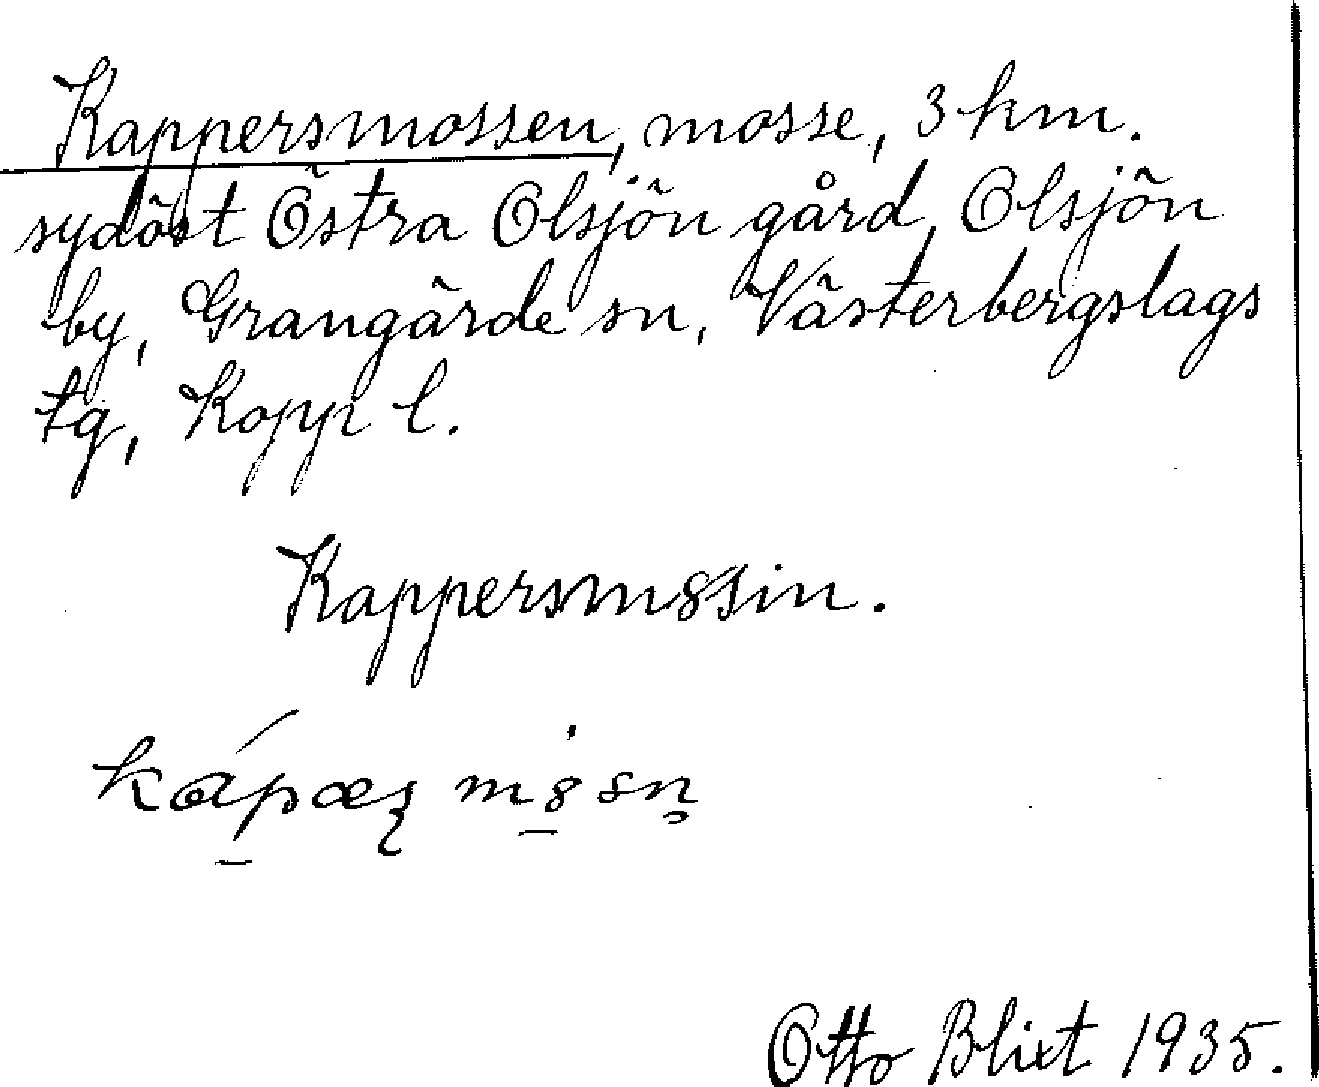 Kappersmossen, mosse, 3 km.
sydöst Östra Olsjön gård, Olsjön
by, Grangärde sn, Västerbergslags
tg, Kopp l.
Kappersm8sin.
Otto Blixt 1935.